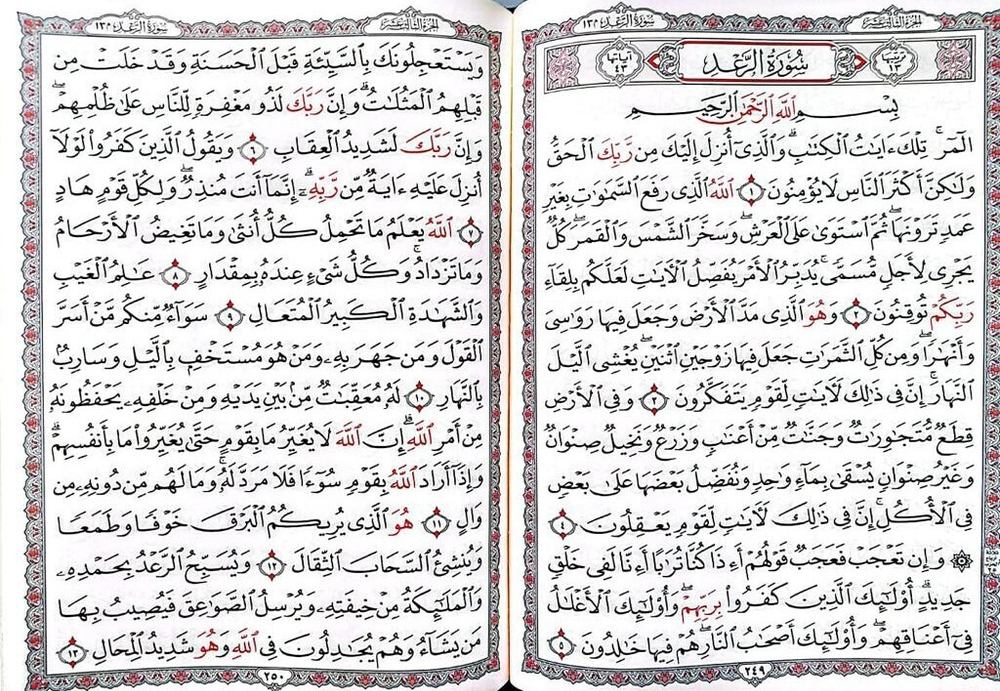 الجزء الثالث عشر
سورة الرعد ١٣
ترتيبها ١٣
سُورَةُ الرَّعْدِ
آياتها ٤٣
بِسْمِ ٱللَّهِ ٱلرَّحْمَٰنِ ٱلرَّحِيمِ
الٓمٓر ۚ تِلْكَ ءَايَٰتُ ٱلْكِتَٰبِ ۗ وَٱلَّذِىٓ أُنزِلَ إِلَيْكَ مِن رَّبِّكَ ٱلْحَقُّ
وَلَٰكِنَّ أَكْثَرَ ٱلنَّاسِ لَا يُؤْمِنُونَ ١ ٱللَّهُ ٱلَّذِى رَفَعَ ٱلسَّمَٰوَٰتِ بِغَيْرِ
عَمَدٍ تَرَوْنَهَا ۖ ثُمَّ ٱسْتَوَىٰ عَلَى ٱلْعَرْشِ ۖ وَسَخَّرَ ٱلشَّمْسَ وَٱلْقَمَرَ ۖ كُلٌّ
يَجْرِى لِأَجَلٍ مُّسَمًّى ۚ يُدَبِّرُ ٱلْأَمْرَ يُفَصِّلُ ٱلْءَايَٰتِ لَعَلَّكُم بِلِقَآءِ
رَبِّكُمْ تُوقِنُونَ ٢ وَهُوَ ٱلَّذِى مَدَّ ٱلْأَرْضَ وَجَعَلَ فِيهَا رَوَٰسِىَ
وَأَنْهَٰرًا ۖ وَمِن كُلِّ ٱلثَّمَرَٰتِ جَعَلَ فِيهَا زَوْجَيْنِ ٱثْنَيْنِ ۖ يُغْشِى ٱلَّيْلَ
ٱلنَّهَارَ ۚ إِنَّ فِى ذَٰلِكَ لَءَايَٰتٍ لِّقَوْمٍ يَتَفَكَّرُونَ ٣ وَفِى ٱلْأَرْضِ
قِطَعٌ مُّتَجَٰوِرَٰتٌ وَجَنَّٰتٌ مِّنْ أَعْنَٰبٍ وَزَرْعٌ وَنَخِيلٌ صِنْوَانٌ
وَغَيْرُ صِنْوَانٍ يُسْقَىٰ بِمَآءٍ وَٰحِدٍ وَنُفَضِّلُ بَعْضَهَا عَلَىٰ بَعْضٍ
فِى ٱلْأُكُلِ ۚ إِنَّ فِى ذَٰلِكَ لَءَايَٰتٍ لِّقَوْمٍ يَعْقِلُونَ ٤
۞ وَإِن تَعْجَبْ فَعَجَبٌ قَوْلُهُمْ أَءِذَا كُنَّا تُرَٰبًا أَءِنَّا لَفِى خَلْقٍ
جَدِيدٍ ۗ أُو۟لَٰٓئِكَ ٱلَّذِينَ كَفَرُوا۟ بِرَبِّهِمْ ۖ وَأُو۟لَٰٓئِكَ ٱلْأَغْلَٰلُ
فِىٓ أَعْنَاقِهِمْ ۖ وَأُو۟لَٰٓئِكَ أَصْحَٰبُ ٱلنَّارِ ۖ هُمْ فِيهَا خَٰلِدُونَ ٥
٢٤٩
الجزء الثالث عشر
سورة الرعد ١٣
وَيَسْتَعْجِلُونَكَ بِٱلسَّيِّئَةِ قَبْلَ ٱلْحَسَنَةِ وَقَدْ خَلَتْ مِن
قَبْلِهِمُ ٱلْمَثُلَٰتُ ۗ وَإِنَّ رَبَّكَ لَذُو مَغْفِرَةٍ لِّلنَّاسِ عَلَىٰ ظُلْمِهِمْ ۖ
وَإِنَّ رَبَّكَ لَشَدِيدُ ٱلْعِقَابِ ٦ وَيَقُولُ ٱلَّذِينَ كَفَرُوا۟ لَوْلَآ
أُنزِلَ عَلَيْهِ ءَايَةٌ مِّن رَّبِّهِۦٓ ۗ إِنَّمَآ أَنتَ مُنذِرٌ ۖ وَلِكُلِّ قَوْمٍ هَادٍ
٧ ٱللَّهُ يَعْلَمُ مَا تَحْمِلُ كُلُّ أُنثَىٰ وَمَا تَغِيضُ ٱلْأَرْحَامُ
وَمَا تَزْدَادُ ۖ وَكُلُّ شَىْءٍ عِندَهُۥ بِمِقْدَارٍ ٨ عَٰلِمُ ٱلْغَيْبِ
وَٱلشَّهَٰدَةِ ٱلْكَبِيرُ ٱلْمُتَعَالِ ٩ سَوَآءٌ مِّنكُم مَّنْ أَسَرَّ
ٱلْقَوْلَ وَمَن جَهَرَ بِهِۦ وَمَنْ هُوَ مُسْتَخْفٍۭ بِٱلَّيْلِ وَسَارِبٌۢ
بِٱلنَّهَارِ ١٠ لَهُۥ مُعَقِّبَٰتٌ مِّنۢ بَيْنِ يَدَيْهِ وَمِنْ خَلْفِهِۦ يَحْفَظُونَهُۥ
مِنْ أَمْرِ ٱللَّهِ ۗ إِنَّ ٱللَّهَ لَا يُغَيِّرُ مَا بِقَوْمٍ حَتَّىٰ يُغَيِّرُوا۟ مَا بِأَنفُسِهِمْ ۗ
وَإِذَآ أَرَادَ ٱللَّهُ بِقَوْمٍ سُوٓءًا فَلَا مَرَدَّ لَهُۥ ۚ وَمَا لَهُم مِّن دُونِهِۦ مِن
وَالٍ ١١ هُوَ ٱلَّذِى يُرِيكُمُ ٱلْبَرْقَ خَوْفًا وَطَمَعًا
وَيُنشِئُ ٱلسَّحَابَ ٱلثِّقَالَ ١٢ وَيُسَبِّحُ ٱلرَّعْدُ بِحَمْدِهِۦ
وَٱلْمَلَٰٓئِكَةُ مِنْ خِيفَتِهِۦ وَيُرْسِلُ ٱلصَّوَٰعِقَ فَيُصِيبُ بِهَا
مَن يَشَآءُ وَهُمْ يُجَٰدِلُونَ فِى ٱللَّهِ وَهُوَ شَدِيدُ ٱلْمِحَالِ ١٣
٢٥٠